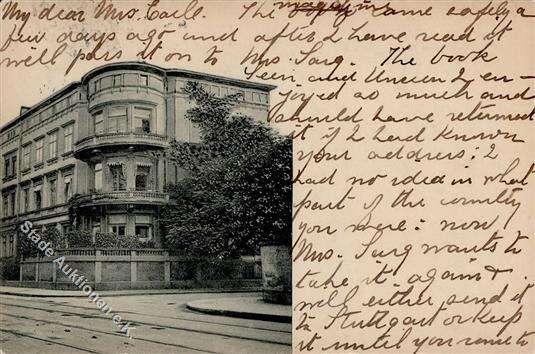 My dear Mrs. Earll. The magazine came safely a
few days ago and after I have read it
will pass it on to Mrs. Sarg. The book
Seen and Unseen I en-
joyed so much and
should have returned
it if I had known
your address; I
had no idea in what
part of the country
you were: now
Mrs. Sarg wants to
take it again &
will either send it
to Stuttgart or keep
it until you come to
Stade Auktionen.de